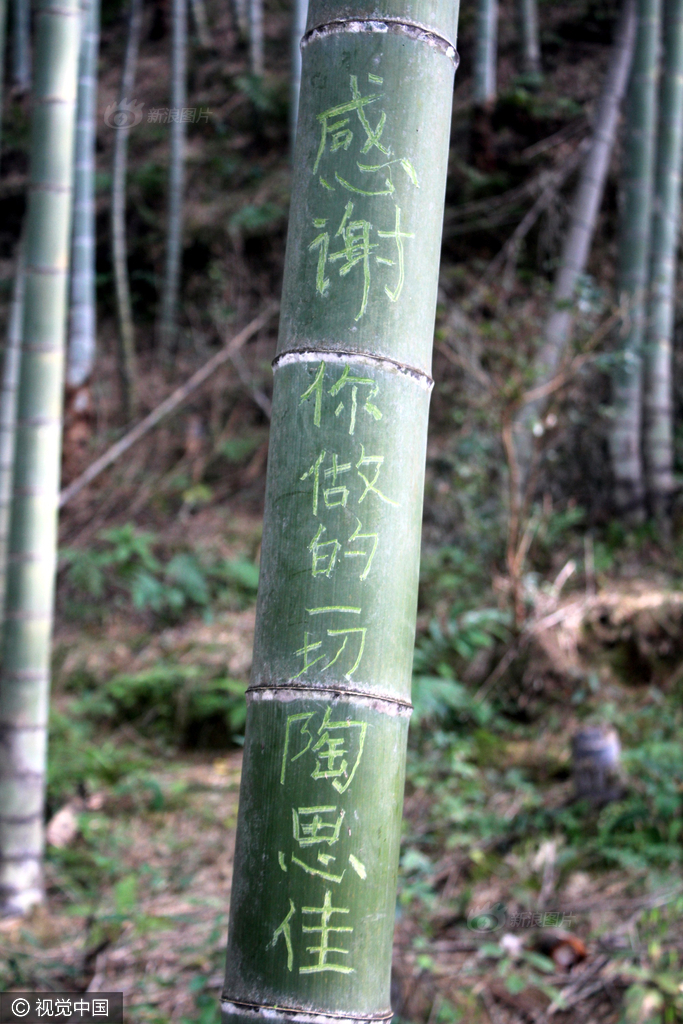 感谢
你做的一切
陶思佳
新浪图片
新浪图片
© 视觉中国